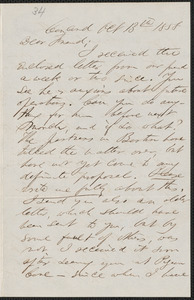 34
Concord Oct 13th 1858
Dear Friend,
I received the
enclosed letter from our friend
a week or two since. You
see he is anxious about future
operations. Can you do any
thing for him before next
March, and if so what?
The persons in Boston have
talked the matter over but
have not yet come to any
definite proposal. Please
write me fully about this.
I send you also an older
letter, which should have
been sent to you, but by
some fault of others, was
not. I received it soon
after seeing you at
since when I have